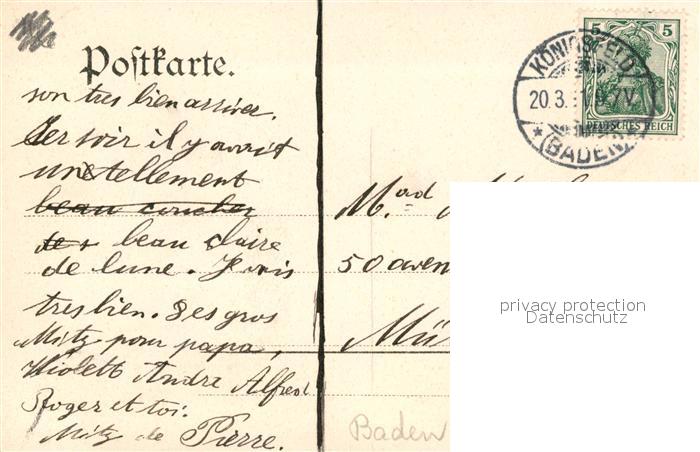 Postkarte.
son tres bien arriver.
Ier soir il y avait
un tellement
beau coucher
beau claire
de lune. Je vis
tres bien. Des gros
Mütz pour papa,
Violett Andre Alfred
Roger et toi.
Mütz de Pierre.
Mad
50 aven
Mü
Baden
5 5
DEUTSCHES REICH
KÖNIGSFELD
20.3. 7V.
* (BADEN)
privacy protection
Datenschutz